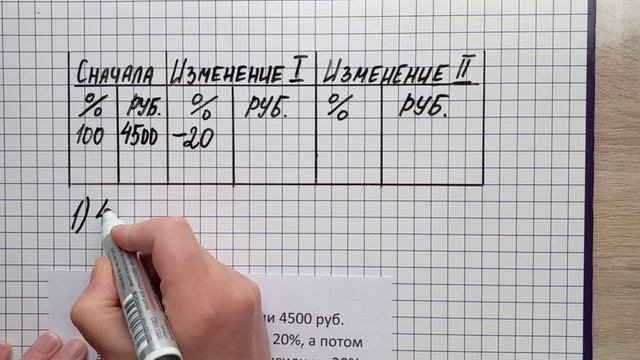 Сначала Изменение I Изменение II
% руб. % руб. % руб.
100 4500 -20
1) 4
4500 руб.
20%, а потом
20%